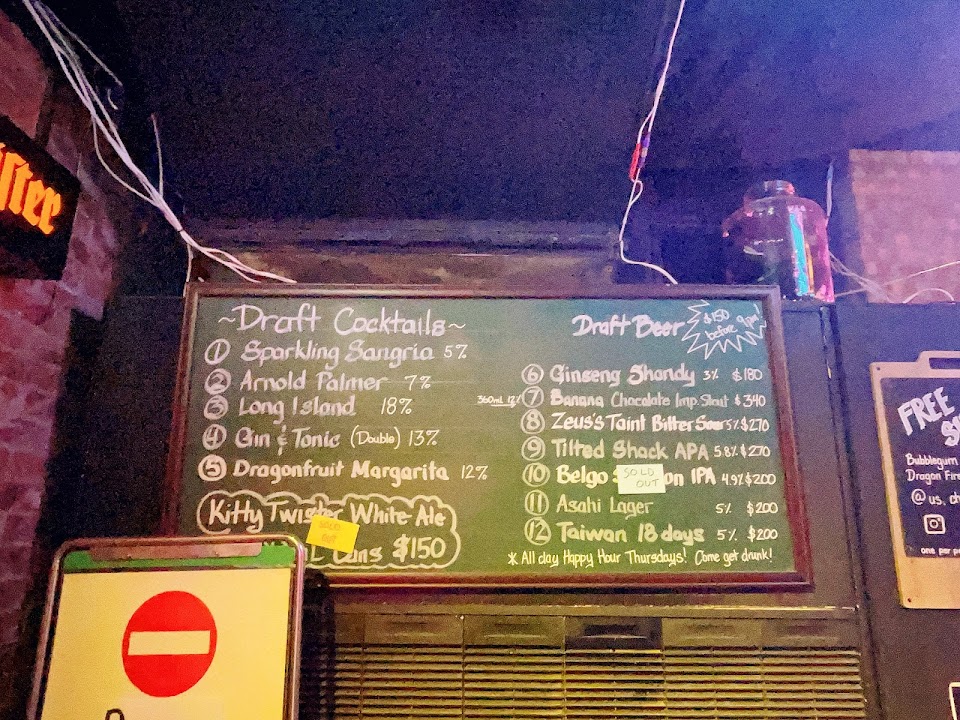 ~Draft Cocktails~
① Sparkling Sangria 5%
② Arnold Palmer 7%
③ Long Island 18%
④ Gin & Tonic (Double) 13%
⑤ Dragonfruit Margarita 12%
Kitty Twister White Ale
SOLD OUT
Cans $150
Draft Beer
$150 before 9pm!
⑥ Ginseng Shandy 3% $180
360ml 12% ⑦ Banana Chocolate Imp. Stout $340
⑧ Zeus's Taint Bitter Sour 5% $270
⑨ Tilted Shack APA 5.8% $270
⑩ Belgo IPA 4.9% $200
SOLD OUT
⑪ Asahi Lager 5% $200
⑫ Taiwan 18 days 5% $200
* All day Happy Hour Thursdays! Come get drunk!
FREE
Bubblegum
Dragon Fire
@us.
one per